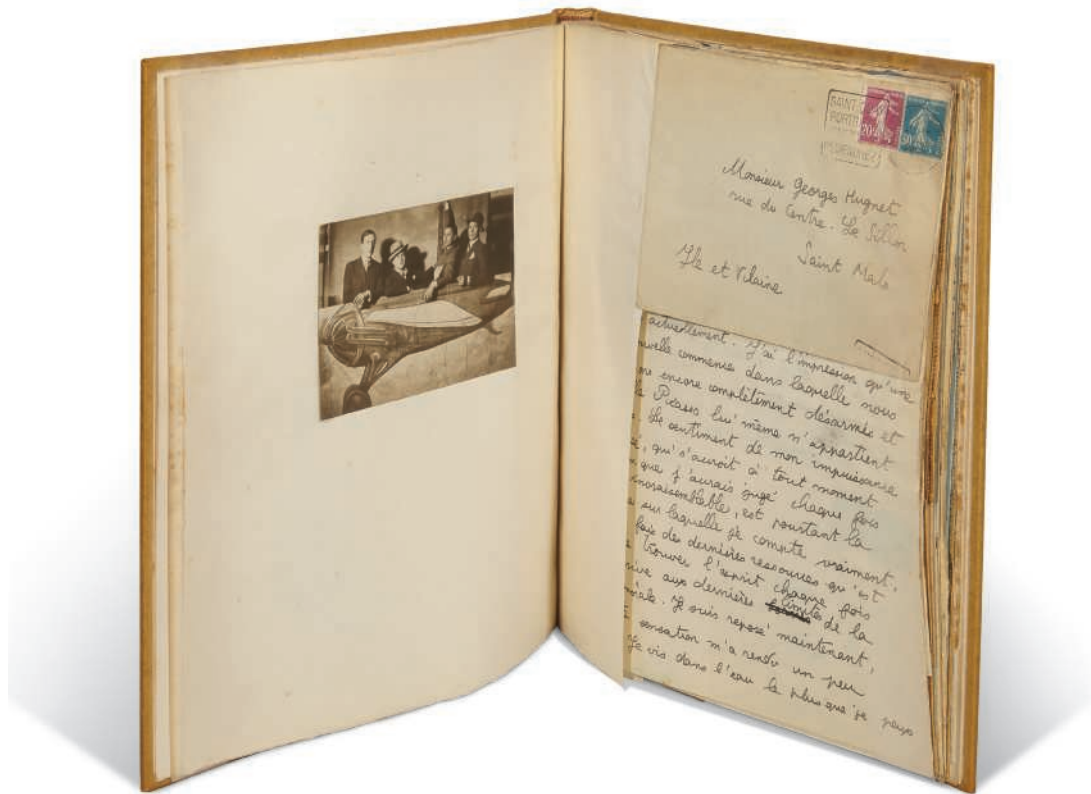 SAINT
20c
50c
Monsieur Georges Hugnet
rue du Centre - Le Sillon
Saint Malo
Ile et Vilaine
actuellement. J'ai l'impression qu'une
commence dans laquelle nous
encore complètement désarmés et
Picasso lui même n'appartient
Le sentiment de mon impuissance
qui s'accroit à tout moment
que j'aurais jugé chaque fois
invraisemblable, est pourtant la
sur laquelle je compte vraiment,
fois des dernières ressources qu'est
trouver l'esprit chaque fois
aux dernières limites de la
Je suis reposé maintenant,
sensation m'a rendu un peu
Je vis dans l'eau le plus que je peux